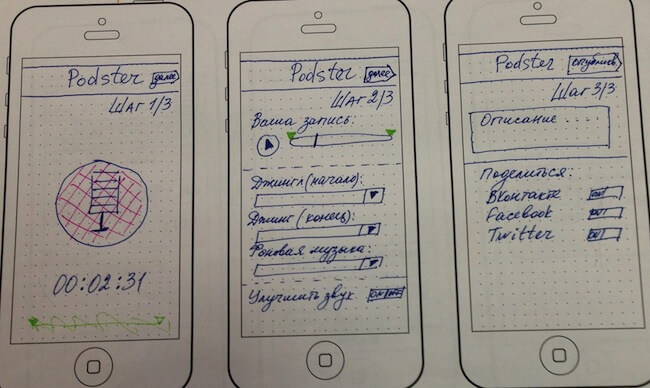 Podster далее
Шаг 1/3
00:02:31
Podster далее
Шаг 2/3
Ваша запись:
Джингл (начало):
Джингл (конец):
Фоновая музыка:
Улучшить звук
Podster
Шаг 3/3
Описание ....
Поделиться:
ВКонтакте
Facebook
Twitter